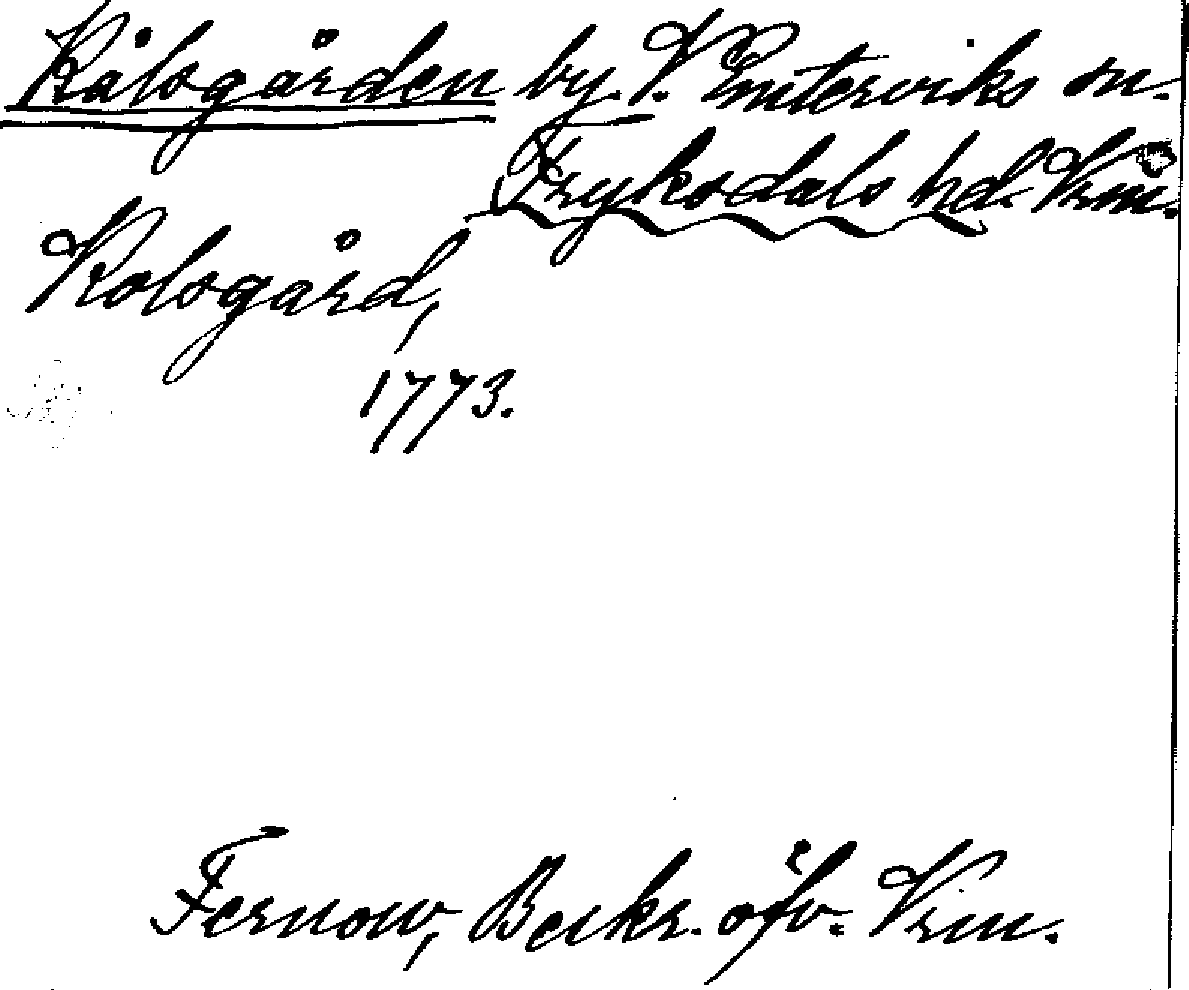 Kålsgården by. V. Emterviks sn.
Fryksdals hd. Vrm.
Kolsgård,
1773.
Fernow, Beskr. öfv. Vrm.